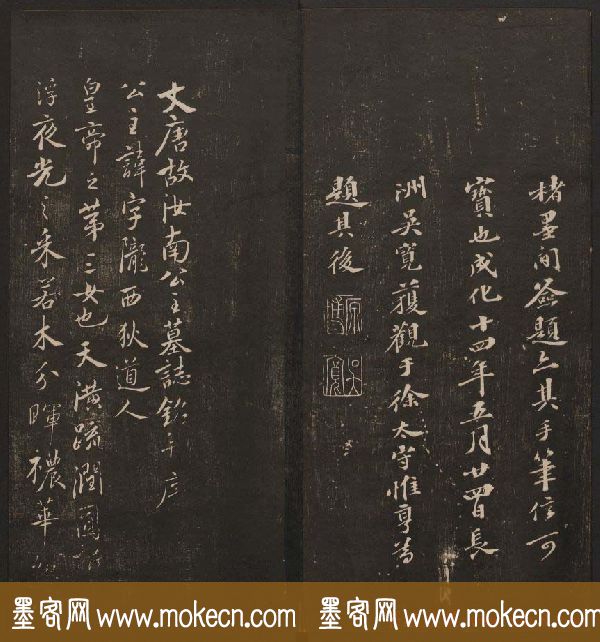 楮墨間簽題亦其手筆信可
寶也成化十四年五月廿四日長
洲吳寬獲觀于徐太守惟亨為
題其後
原博
吳寬
大唐故汝南公主墓誌銘并序
公主諱字隴西狄道人
皇帝之第三女也天潢疏潤圓折
浮夜光之采若木分暉穠華
墨客网 www.mokecn.com
墨客网 www.mokecn.com